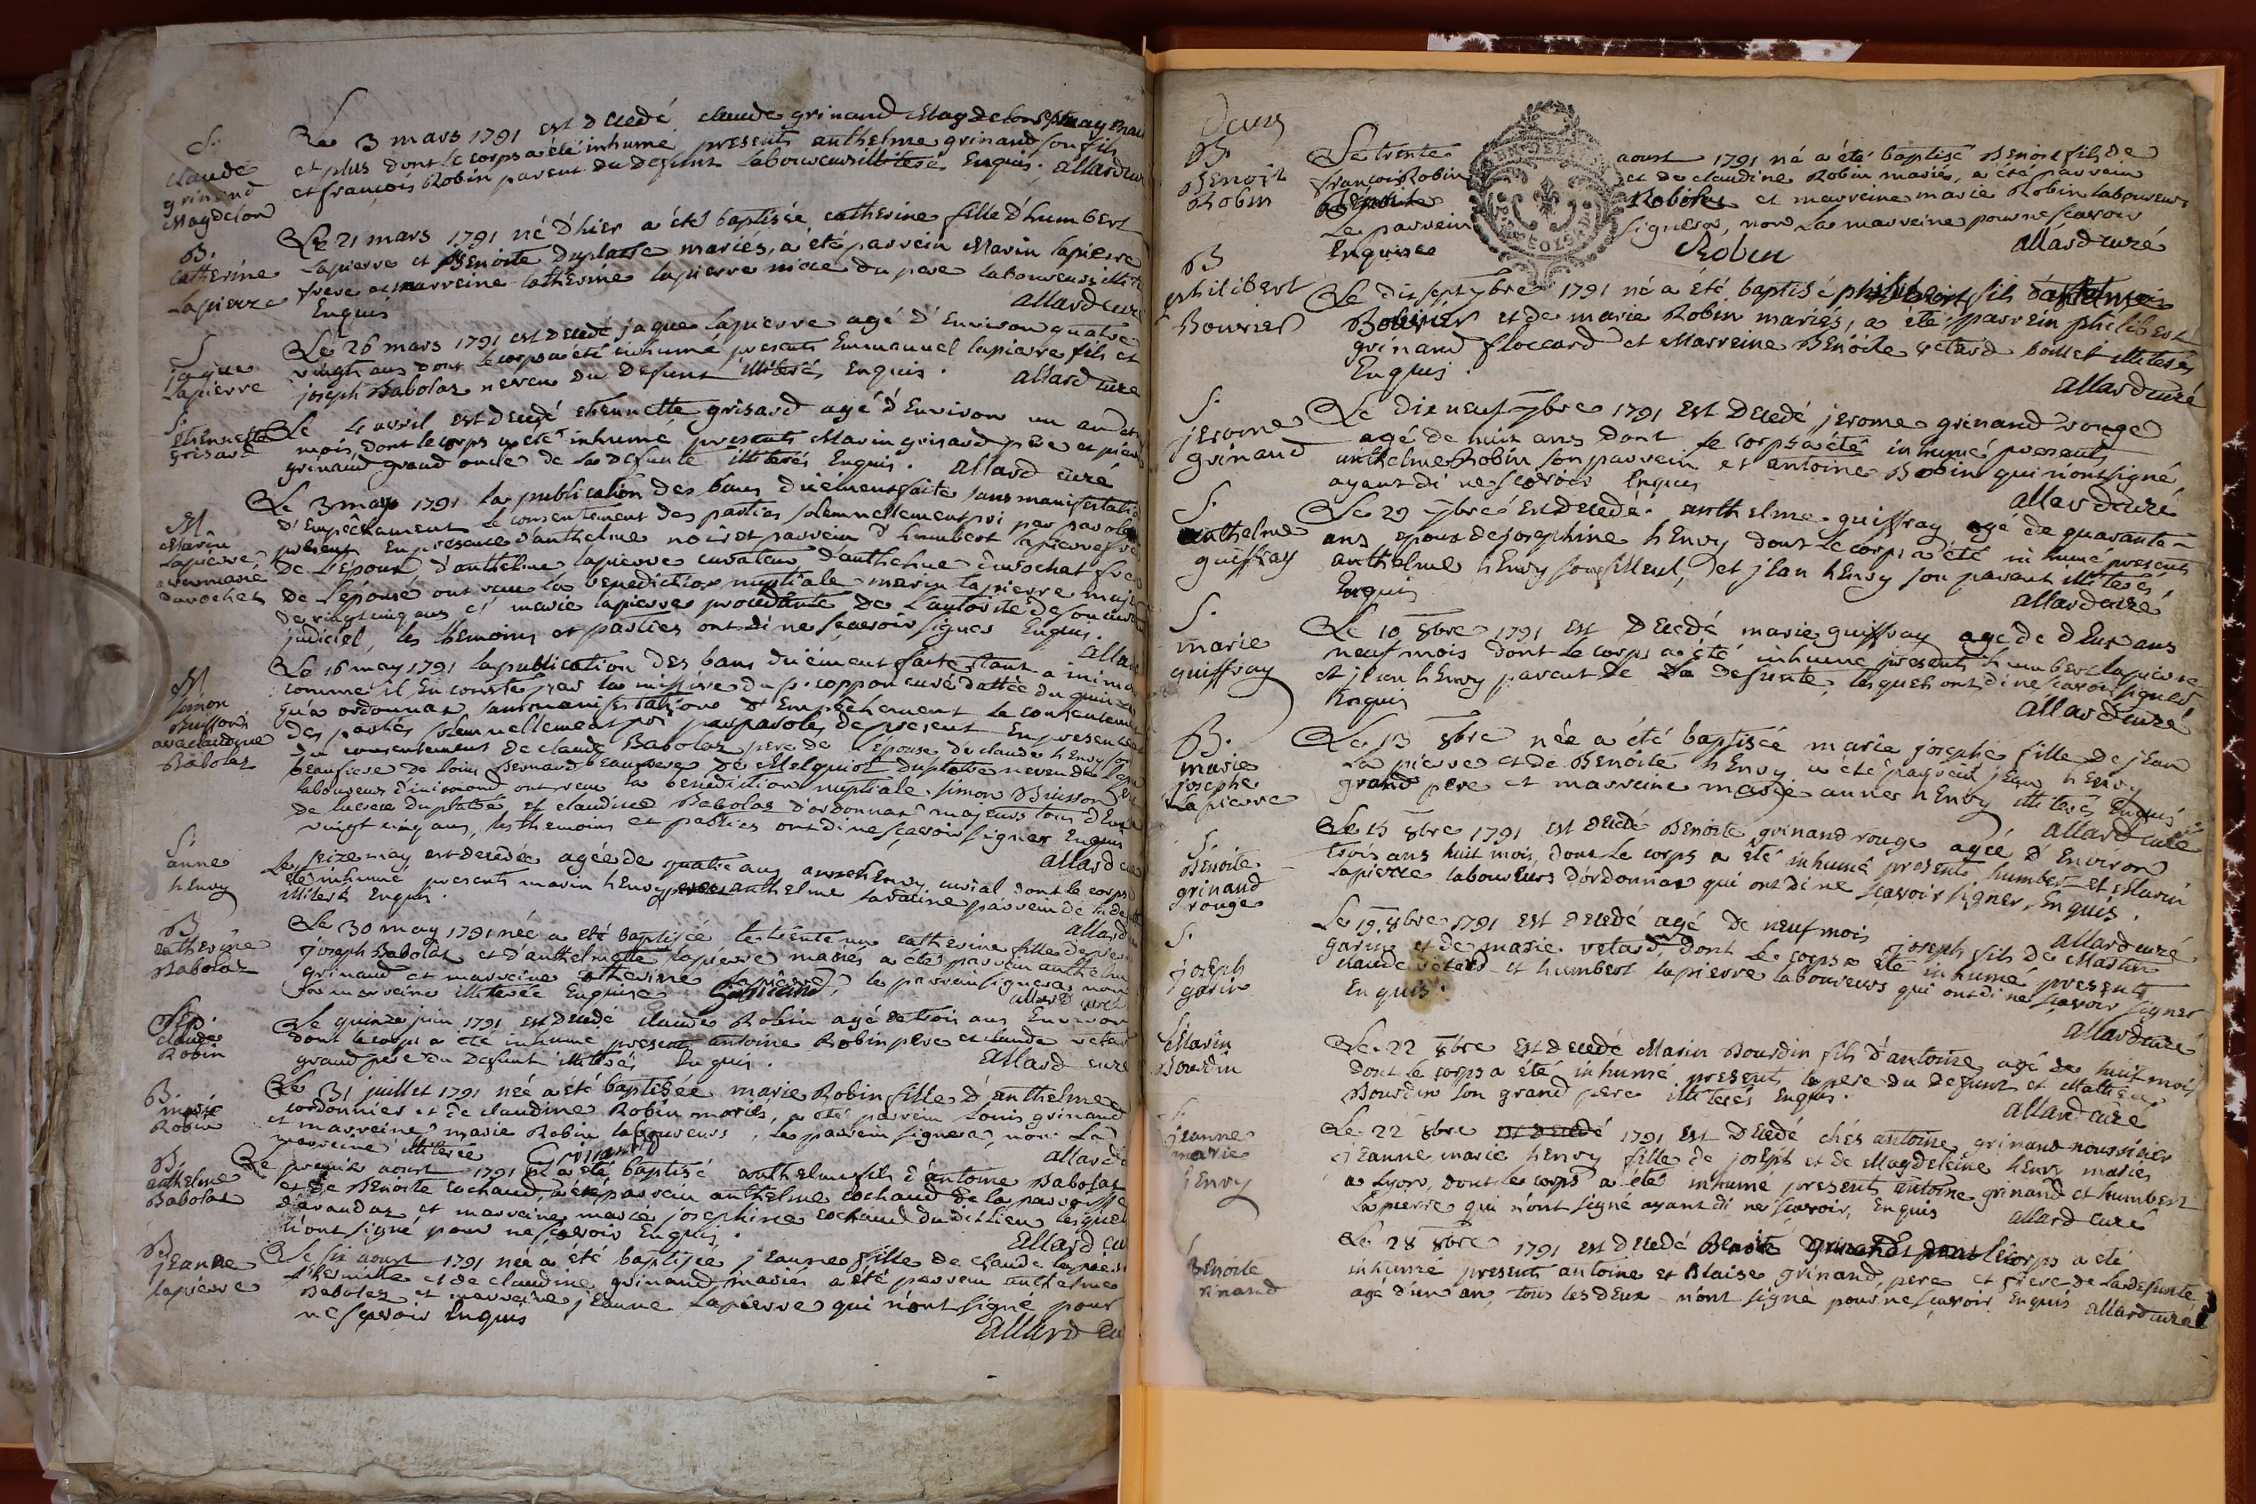 S.
claude
grinand
Magdelon
Le 3 mars 1791 est decedé claude grinand Magdelon
et plus dont le corps a été inhumé presents anthelme grinand son fils
et françois Robin parent du defunt laboureurs illiterés Enquis. allard curé
B.
catherine
lapierre
Le 21 mars 1791 né d'hier a été baptisée catherine fille d'humbert
lapierre et Benoite Duplatre mariés, a été parrein Marin lapierre
frere et marreine catherine lapierre niece du pere laboureurs
Enquis allard curé
S
jaque
lapierre
Le 26 mars 1791 est decedé jaque lapierre agé d'Environ quatre
vingt ans dont le corps a été inhumé presents Emmanuel lapierre fils et
joseph Babolat neveu du defunt illiterés Enquis. allard curé
S.
ethiennette
grisard
Le 4 avril est decedé ethiennette grisard agé d'Environ un an et
mois, dont le corps a été inhumé presents Marin grisard pere et
grinand grand oncle de la defunte illiterés Enquis. allard curé
M
Marin
lapierre
avec marie
curochet
Le 3 may 1791 la publication des bans düement faite sans manifestation
d'Empêchement le consentement des parties solemnellement pri par paroles
present En presence d'anthelme noir et parrein d'humbert lapierre frere
de l'Epoux d'anthelme lapierre curateur d'anthelme curochet frere
de l'épouse ont recu la benediction nuptiale marin lapierre majeur
de vingt cinq ans et marie lapierre procedante de l'autorité de son
judiciel, les themoins et parties ont di ne sçavoir signer Enquis.
allard
M
simon
Buisson
avec claudine
Babolat
Le 16 may 1791 la publication des bans düement faite tant a
comme il En conste par la missive du sr. coppon curé dattée du quinze
qu'a ordonnas sans manifestation d'Empechement le consentement
des parties solemnellement pri par paroles de present En presence
du consentement de claude Babolat pere de l'Epouse de claude hEnvy
beaufrere de louis Bernard beaupere de Melquiot duplatre neveu de
laboureurs d'inimond ont recu la benediction nuptiale simon Buisson
de duplatre et claudine Babolat d'ordonnas majeurs tous deux
vingt cinq ans, les themoins et parties ont di ne sçavoir signer Enquis
allard curé
S.
anne
hEnvy
Le seize may est decedée agée de quatre ans anne hEnvy curial dont le corps
été inhumé presents marin hEnvy pere anthelme savarine parrein de la
illiterés Enquis.
allard
B
catherine
Babolat
Le 30 may 1791 née a été baptisée le trente un catherine fille de
joseph Babolat et d'anthelmette lapierre mariés a été parrein anthelme
grinand et marreine catherine lapierre, le parrein signera non
la marreine illiterée Enquise Grinand
allard curé
Sep.
claude
Robin
Le quinze juin 1791 est decedé claude Robin agé de trois ans Environ
dont le corps a été inhumé presents antoine Robin pere et claude vetard
grand pere du defunt illiterés Enquis. allard curé
B.
marie
Robin
Le 31 juillet 1791 née a été baptisée marie Robin fille d'anthelme
cordonnier et de claudine Robin mariés, a été parrein louis grinand
et marreine marie Robin laboureurs, le parrein signera, non la
marreine illiterée Grinand allard
B.
anthelme
Babolat
Le premier aoust 1791 né a été baptisé anthelme fils d'antoine Babolat
et de Benoite cochaud, a été parrein anthelme cochaud de la parroisse
d'arandas et marreine marie josephine cochaud dudit lieu lesquels
n'ont signé pour ne sçavoir Enquis. allard curé
B.
jeanne
lapierre
Le six aoust 1791 née a été baptisée jeanne fille de claude lapierre
thermitte et de claudine grinand mariés a été parrein anthelme
Babolat et marreine jeanne lapierre qui n'ont signé pour
ne sçavoir Enquis
allard curé
deux
B.
Benoit
Robin
Le trente aoust 1791 né a été baptisé Benoit fils de
françois Robin et de claudine Robin mariés, a été parrein
Benoit Robin et marreine marie Robin laboureurs
le parrein signera, non la marreine pour ne sçavoir
Enquise Robin allard curé
B
philibert
Bouvier
Le dix septbre 1791 né a été baptisé philibert fils d'anthelme
Bouvier et de marie Robin mariés, a été parrein philibert
grinand floccard et Marreine Benoite vetard bollet illiterés
Enquis.
allard curé
S.
jerome
grinand
Le dix neuf 7bre 1791 est decedé jerome grinand rouge
agé de huit ans dont le corps a été inhumé presents
anthelme Robin son parrein et antoine Robin qui n'ont signé
ayant di ne sçavoir Enquis
allard curé
S.
anthelme
guiffray
Le 29 7bre Est decedé anthelme guiffray agé de quarante
ans epoux de josephine hEnvy dont le corps a été inhumé presents
anthelme hEnvy son filleul, et jean hEnvy son parent illiterés
Enquis
allard curé
S.
marie
guiffray
Le 10 8bre 1791 est decedé marie guiffray agé de deux ans
neuf mois dont le corps a été inhumé presents humbert lapierre
et jean hEnvy parent de la defunte, lesquels ont di ne sçavoir signer
Enquis
allard curé
B.
marie
josephe
lapierre
Le 13 8bre née a été baptisée marie josephe fille de jean
lapierre et de Benoite hEnvy a été parrein jean hEnvy
grand pere et marreine marie anne hEnvy illiterés Enquis
allard curé
S.
Benoite
grinand
rouge
Le 15 8bre 1791 est decedé Benoite grinand rouge agée d'Environ
trois ans huit mois, dont le corps a été inhumé presents humbert et Marin
lapierre laboureurs d'ordonnas qui ont di ne sçavoir signer, Enquis.
allard curé
S.
joseph
garin
Le 19 8bre 1791 est decedé agé de neuf mois joseph fils de Martin
garin et de marie vetard, dont le corps a été inhumé presents
claude vetard et humbert lapierre laboureurs qui ont di ne sçavoir signer
Enquis.
allard curé
Marin
Bourdin
Le 22 8bre est decedé Marin Bourdin fils d'antoine agé de huit mois
dont le corps a été inhumé presents le pere du defunt et Mathieu
Bourdin son grand pere illiterés Enquis.
allard curé
S.
jeanne
marie
hEnvy
Le 22 8bre est decedé 1791 est decedé chés antoine grinand nourricier
jeanne marie hEnvy fille de joseph et de Magdeleine hEnvy mariés
a Lyon, dont le corps a été inhumé presents antoine grinand et humbert
lapierre qui n'ont signé ayant di ne sçavoir, Enquis allard curé
Benoite
grinand
Le 28 8bre 1791 est decedé Benoite grinand dont le corps a été
inhumé presents antoine et Blaise grinand, pere et frere de la defunte
agé d'un an, tous les deux n'ont signé pour ne sçavoir Enquis allard curé